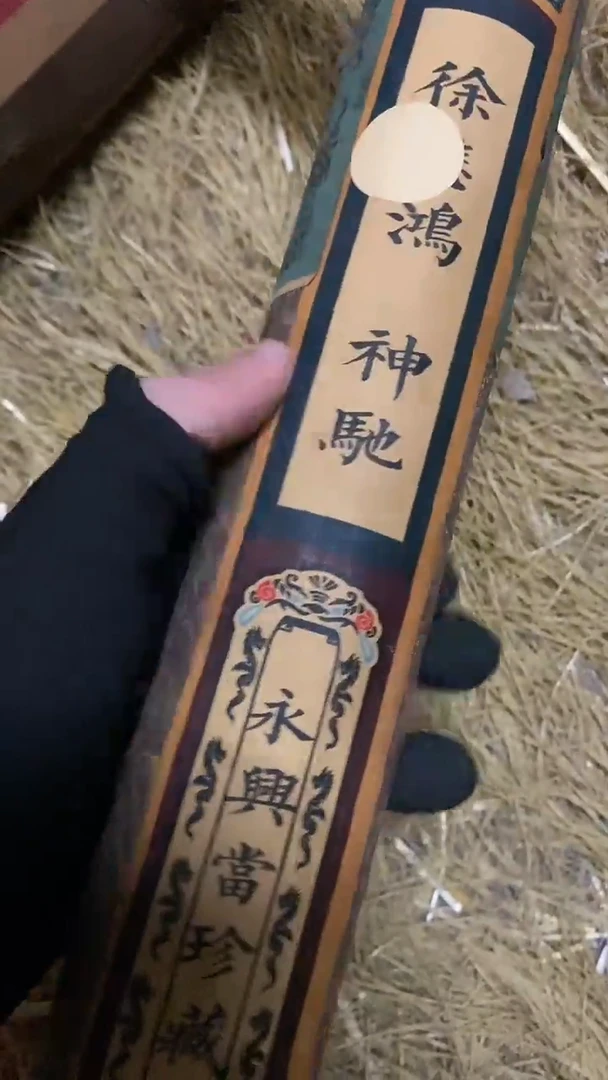 徐鴻 神馳
永興當珍藏